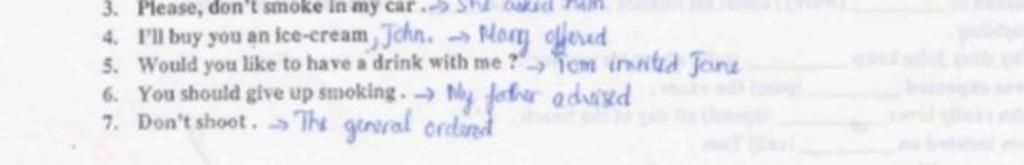 3. Please, don't smoke in my car. → She asked him
4. I'll buy you an ice-cream, John. → Mary offered
5. Would you like to have a drink with me ? → Tom invited Jane
6. You should give up smoking. → My father advised
7. Don't shoot. → The general ordered